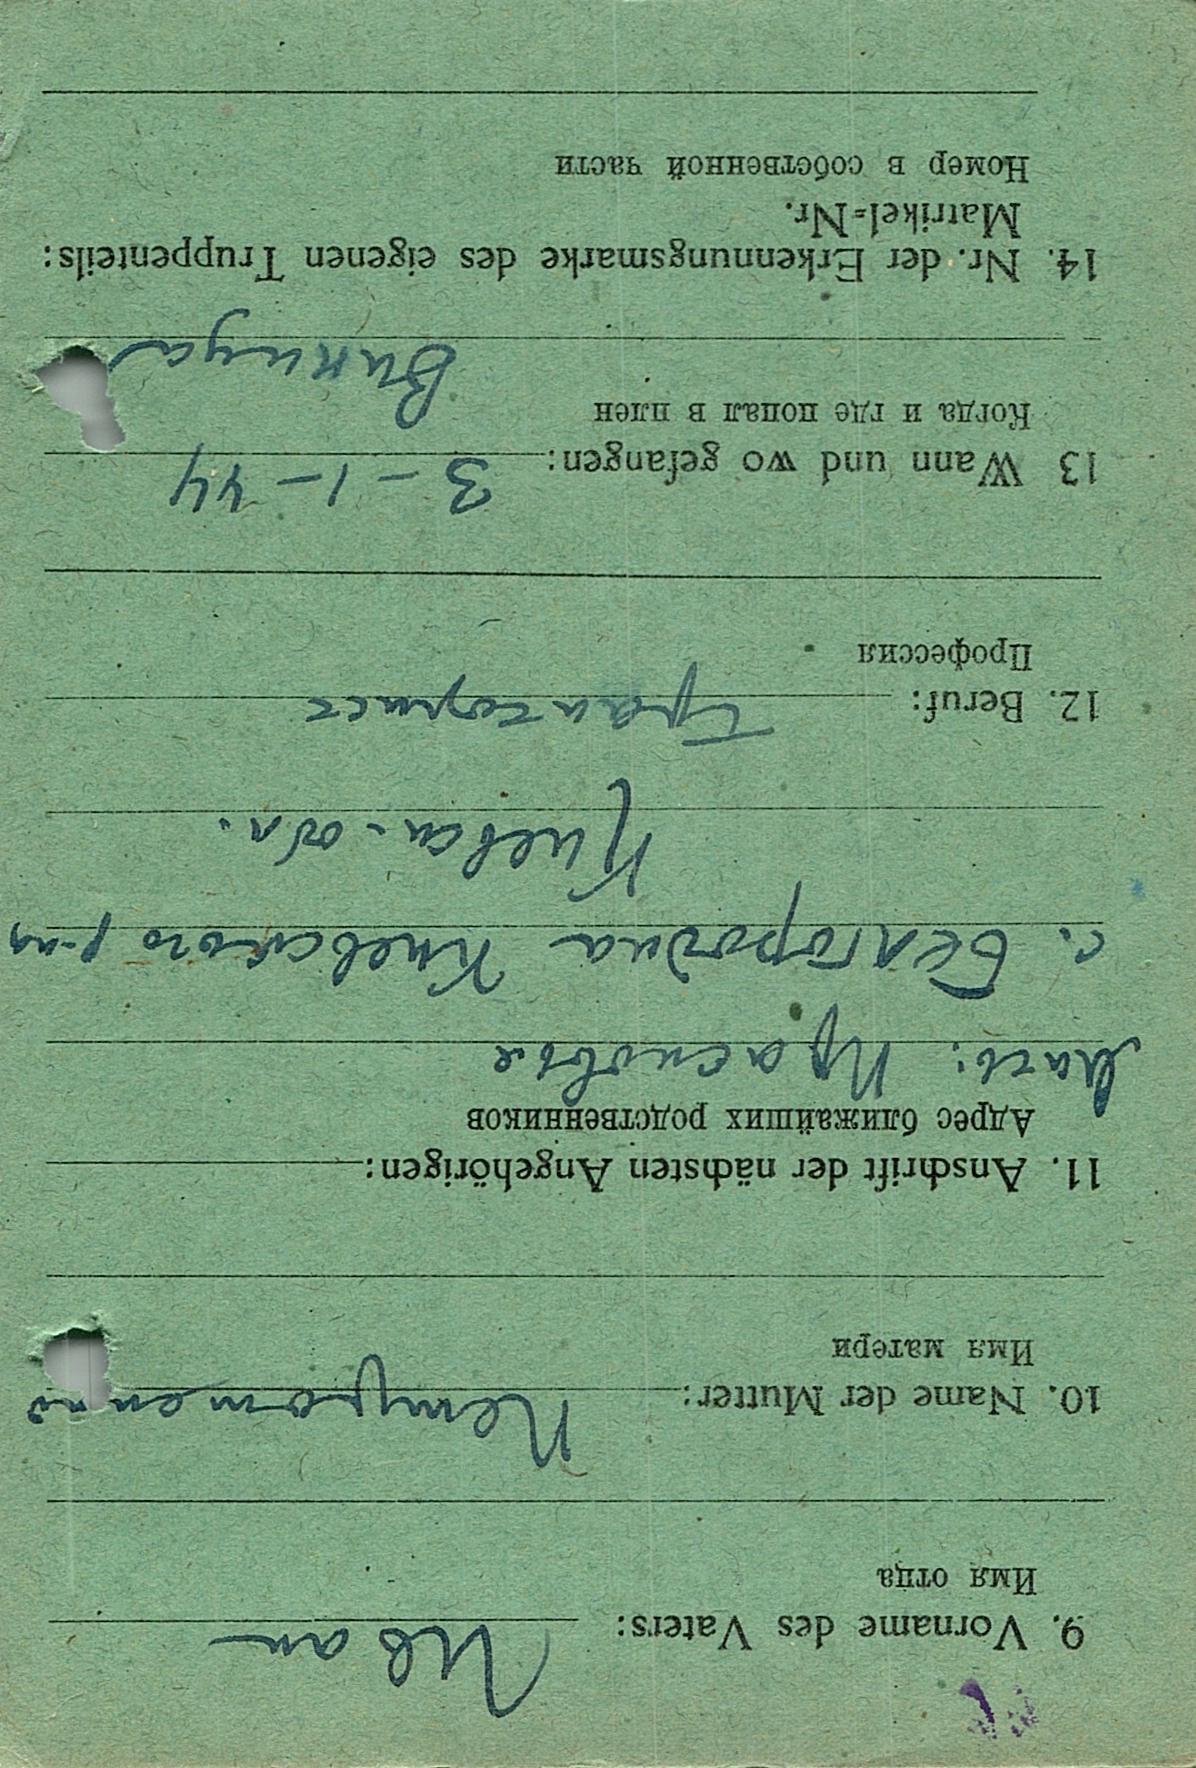 9. Vorname des Vaters: Иван
Имя отца
10. Name der Mutter:
Имя матери
11. Anschrift der nächsten Angehörigen:
Адрес ближайших родственников
Мать: Прасковья
с. Белгородка Киевского р-на
Киевск. обл.
12. Beruf: Тракторист
Профессия
13 Wann und wo gefangen: 3-1-44
Когда и где попал в плен
Винница
14. Nr. der Erkennungsmarke des eigenen Truppenteils:
Matrikel=Nr.
Номер в собственной части